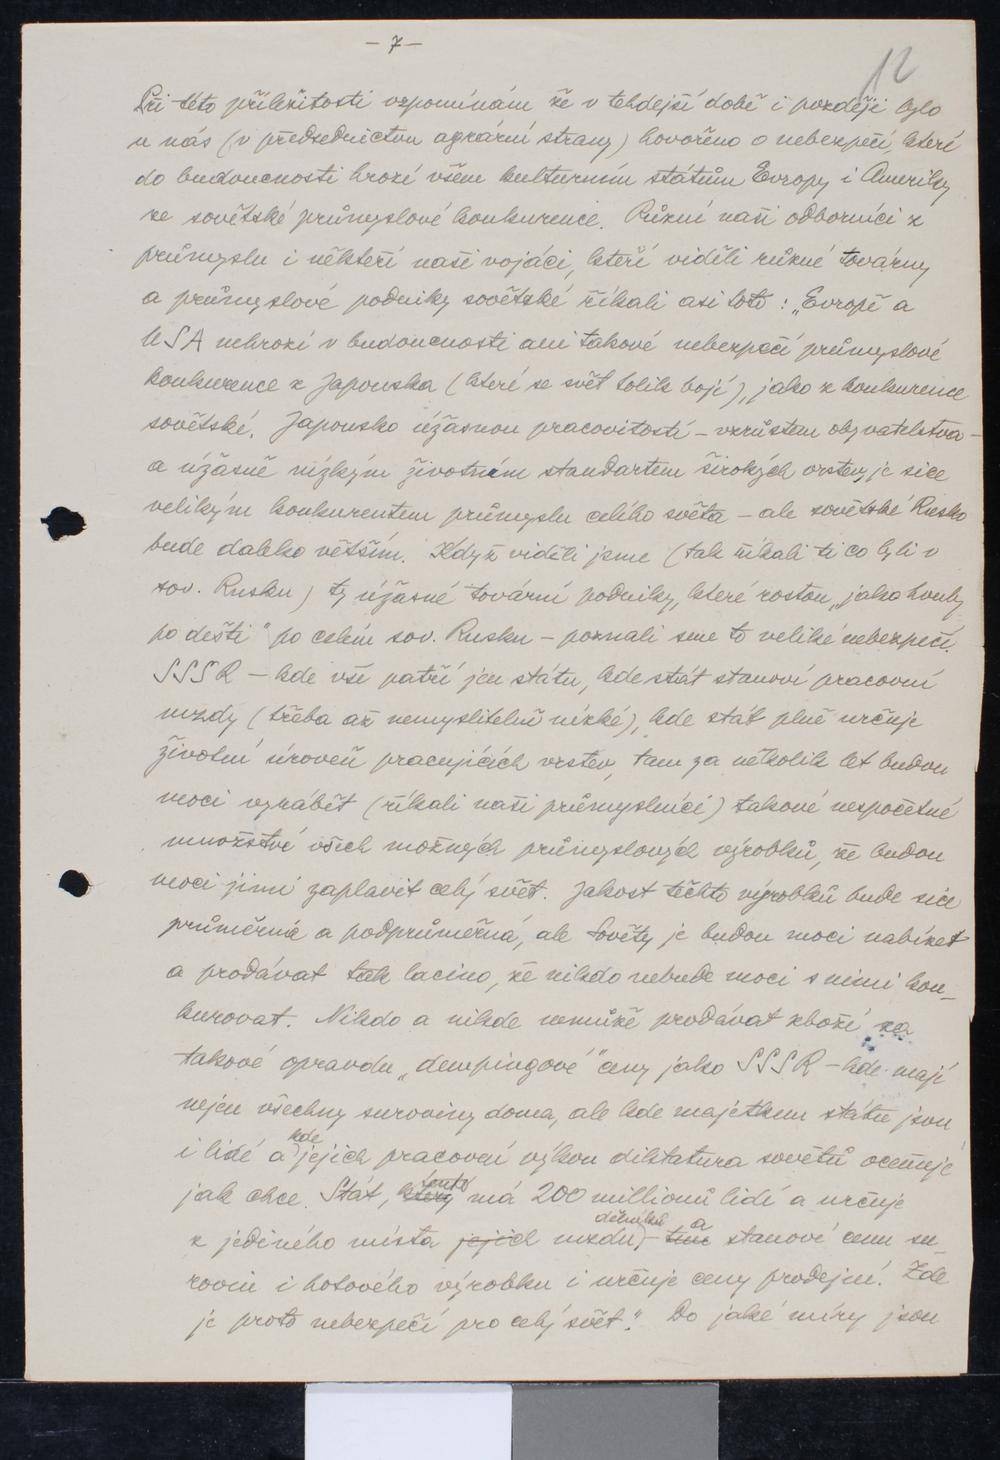 – 7 –
12
Při této příležitosti vzpomínám že v tehdejší době i později bylo
u nás (v předsednictvu agrární strany) hovořeno o nebezpečí, které
do budoucnosti hrozí všem kulturním státům Evropy i Ameriky
ze sovětské průmyslové konkurence. Různí naši odborníci z
průmyslu i někteří naši vojáci, kteří viděli různé továrny
a průmyslové podniky sovětské říkali asi toto : „Evropě a
USA nehrozí v budoucnosti ani takové nebezpečí průmyslové
konkurence z Japonska (které se svět tolik bojí), jako z konkurence
sovětské. Japonsko úžasnou pracovitostí – vzrůstem obyvatelstva –
a úžasně nízkým životním standartem širokých vrstev je sice
velikým konkurentem průmyslu celého světa – ale sovětské Rusko
bude daleko větším. Když viděli jsme (tak říkali ti co byli v
sov. Rusku) ty úžasné tovární podniky, které rostou „jako houby
po dešti" po celém sov. Rusku – poznali sme to veliké nebezpečí.
SSSR – kde vše patří jen státu, kde stát stanoví pracovní
mzdy (třeba až nemyslitelně nízké), kde stát plně určuje
životní úroveň pracujících vrstev, tam za několik let budou
moci vyrábět (říkali naši průmyslníci) takové nespočetné
množství všech možných průmyslových výrobků, že budou
moci jimi zaplavit celý svět. Jakost těchto výrobků bude sice
průměrná a podprůměrná, ale Sověty je budou moci nabízet
a prodávat tak lacino, že nikdo nebude moci s nimi kon-
kurovat. Nikdo a nikde nemůže prodávat zboží za
takové opravdu „dempingové" ceny jako SSSR – kde mají
nejen všechny suroviny doma, ale kde majetkem státu jsou
i lidé a kde jejich pracovní výkon diktatura sovětů oceňuje
jak chce. Stát, který tento má 200 millionů lidí a určuje
z jediného místa jejich mzdu dělníků – a stanoví cenu su-
rovin i hotového výrobku i určuje ceny prodejní. Zde
je proto nebezpečí pro celý svět." Do jaké míry jsou